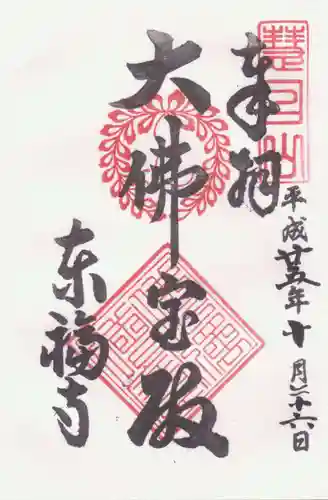 慧日山
奉拝
平成廿五年十一月二十六日
大佛宝殿
東福寺